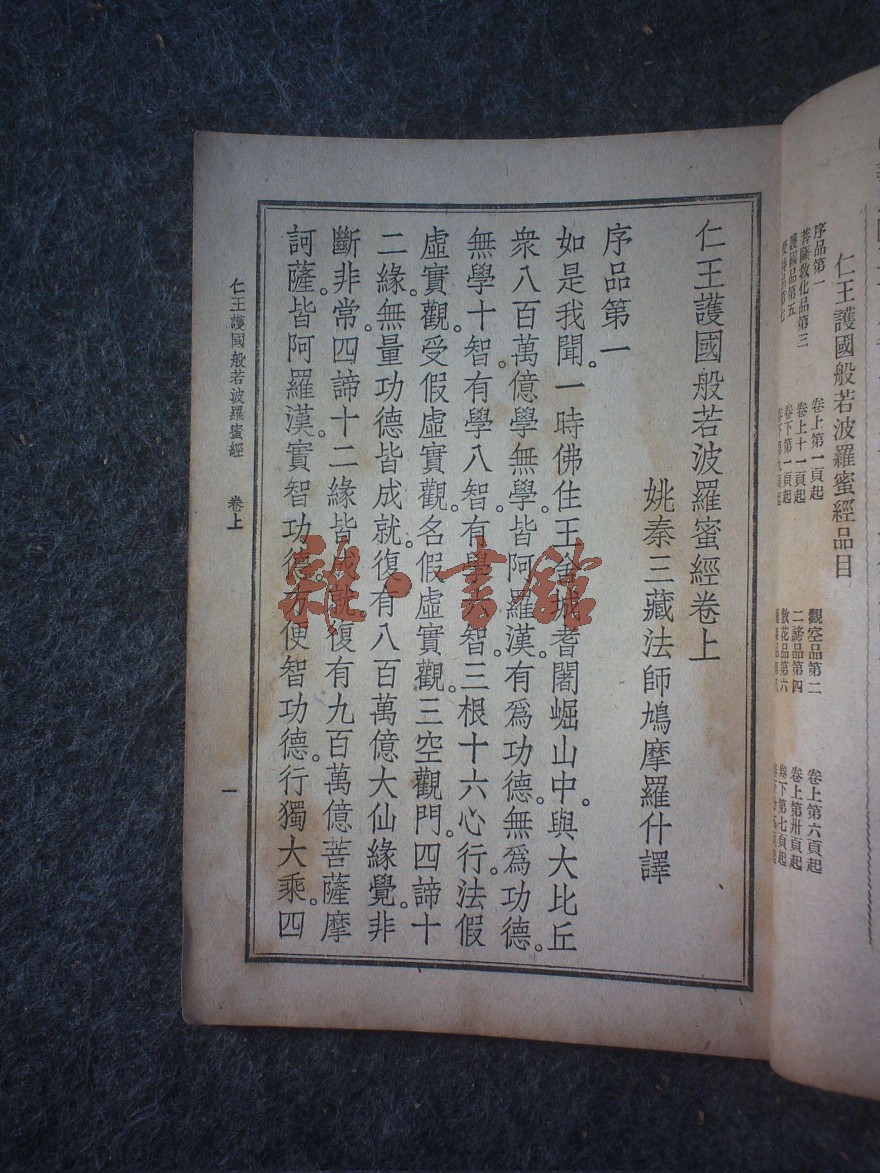 仁王護國般若波羅蜜經品目
序品第一　卷上第一頁起　觀空品第二　卷上第六頁起
菩薩教化品第三　卷上十一頁起　二諦品第四　卷上第卅頁起
護國品第五　卷下第一頁起　散花品第六　卷下第七頁起
仁王護國般若波羅蜜經卷上
姚秦三藏法師鳩摩羅什譯
序品第一
如是我聞。一時佛住王舍城耆闍崛山中。與大比丘
衆八百萬億學無學。皆阿羅漢。有爲功德。無爲功德。
無學十智。有學八智。有學六智。三根十六心行。法假
虛實觀。受假虛實觀。名假虛實觀。三空觀門。四諦十
二緣。無量功德皆成就。復有八百萬億大仙緣覺。非
斷非常。四諦十二緣皆成就。復有九百萬億菩薩摩
訶薩。皆阿羅漢。實智功德。方便智功德。行獨大乘。四
仁王護國般若波羅蜜經　卷上　一
雜·書館